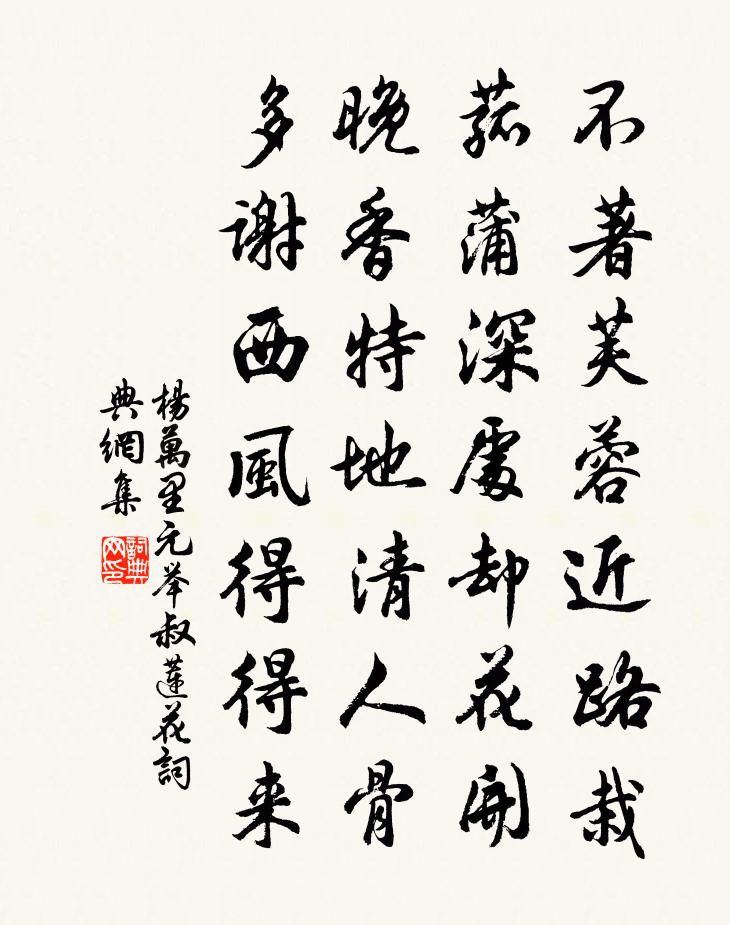 不著芙蓉近路栽
菰蒲深處却花開
晚香特地清人骨
多謝西風得得来
楊萬里元举叔蓮花詞
典網集
詞典
网印